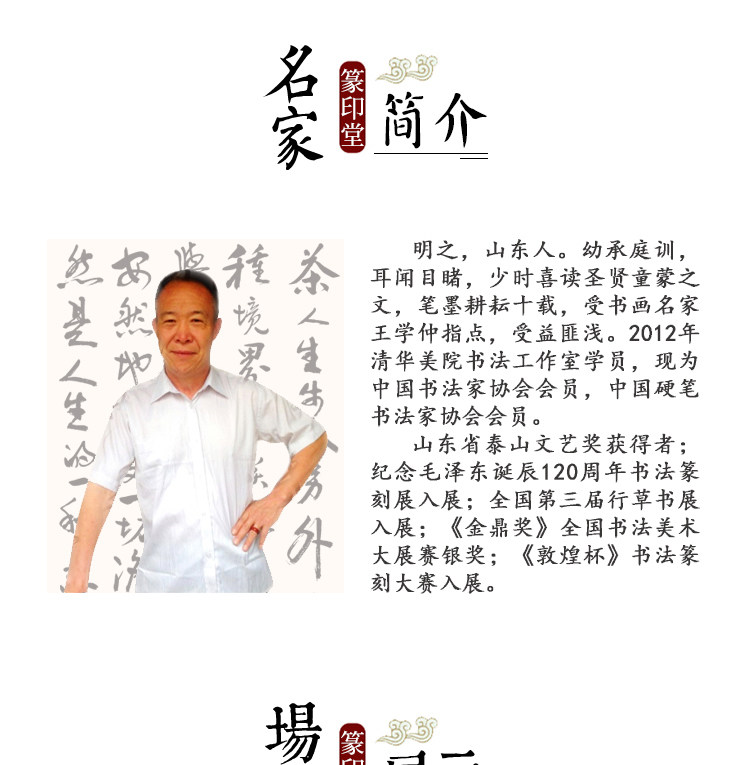 名家
篆印堂
简介
明之，山东人。幼承庭训，
耳闻目睹，少时喜读圣贤童蒙之
文，笔墨耕耘十载，受书画名家
王学仲指点，受益匪浅。2012年
清华美院书法工作室学员，现为
中国书法家协会会员，中国硬笔
书法家协会会员。
山东省泰山文艺奖获得者；
纪念毛泽东诞辰120周年书法篆
刻展入展；全国第三届行草书展
入展；《金鼎奖》全国书法美术
大展赛银奖；《敦煌杯》书法篆
刻大赛入展。
茶人生
外
種境界
安然地
然是人生的一种
場
篆